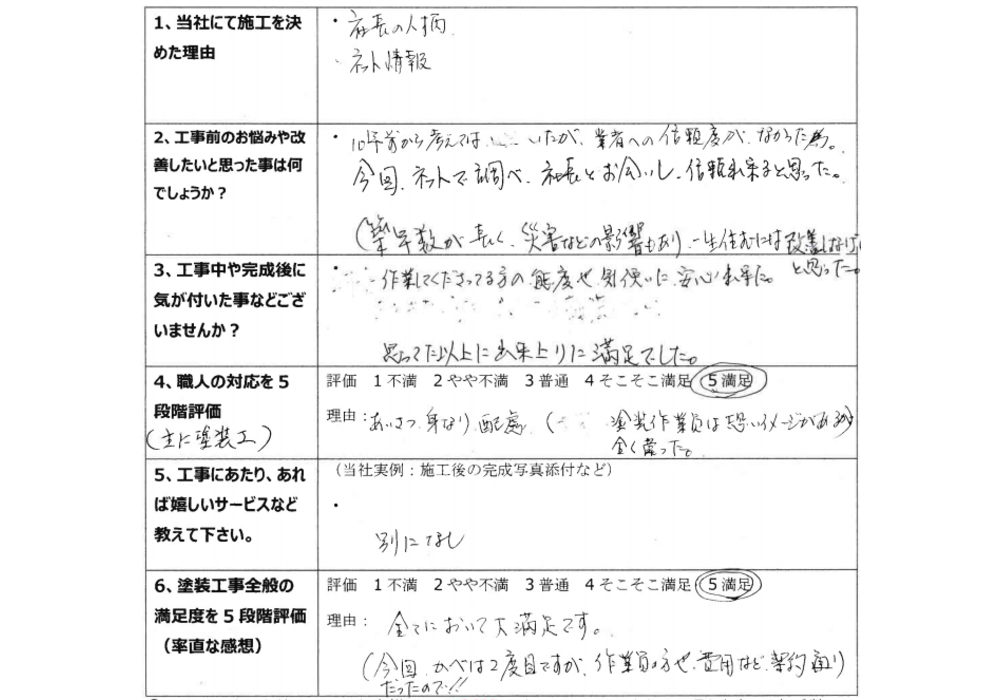 1、当社にて施工を決
めた理由
・社長の人柄
・ネット情報
2、工事前のお悩みや改
善したいと思った事は何
でしょうか?
・10年前から考えてはいたが、業者への信頼度が、なかった為。
今回、ネットで調べ、社長とお会いし、信頼出来ると思った。
(築年数が長く、災害などの影響もあり、一生住むには改善しなければ
と思った。
3、工事中や完成後に
気が付いた事などござ
いませんか?
・作業してくださってる方の態度や気使いに安心出来た。
思ってた以上に出来上りに満足でした。
4、職人の対応を5
段階評価
(主に塗装工)
評価 1不満 2やや不満 3普通 4そこそこ満足 5満足
理由:あいさつ 身なり 配慮 (塗装作業員は悪いイメージがあるが
全く違った。
5、工事にあたり、あれ
ば嬉しいサービスなど
教えて下さい。
(当社実例:施工後の完成写真添付など)
・
別になし
6、塗装工事全般の
満足度を5段階評価
(率直な感想)
評価 1不満 2やや不満 3普通 4そこそこ満足 5満足
理由: 全てにおいて大満足です。
(今回、かべは2度目ですが、作業員の方や、費用など、契約通り)
だったので!!